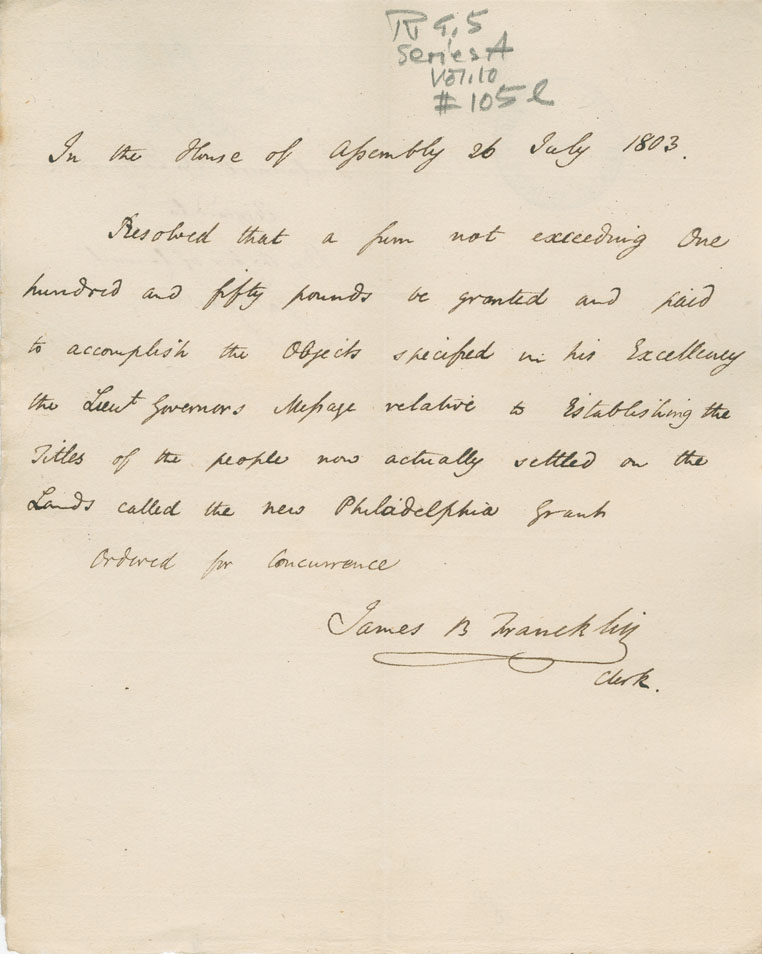 R G.5
Series A
Vol.10
# 105 l
In the House of Assembly 26 July 1803.
Resolved that a sum not exceeding One
hundred and fifty pounds be granted and paid
to accomplish the Objects specified in his Excellency
the Lieut Governors Message relative to Establishing the
Titles of the people now actually settled on the
Lands called the new Philadelphia Grant
Ordered for Concurrence
James B Francklin
Clerk.